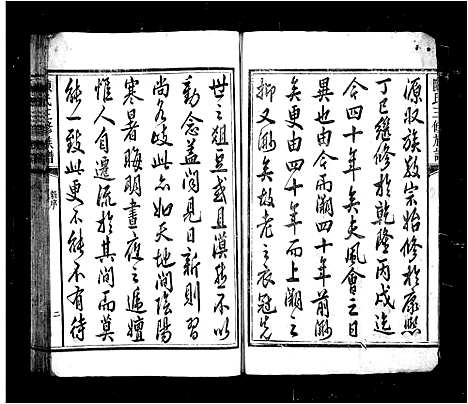 陳氏三修族譜
源收族敦宗始修於康熙
丁巳繼修於乾隆丙戌迄
今四十年矣夫風會之日
異也由今而溯四十年前渺
矣更由四十年而上溯之
抑又渺矣故老之衣冠先
世之俎豆或且漠然不以
動念蓋聞見日新則習
尚名歧此亦如天地間陰陽
寒暑晦明晝夜之遞嬗
惟人自遷流於其間而莫
能一致此更不能不有待
陳氏三修族譜
二